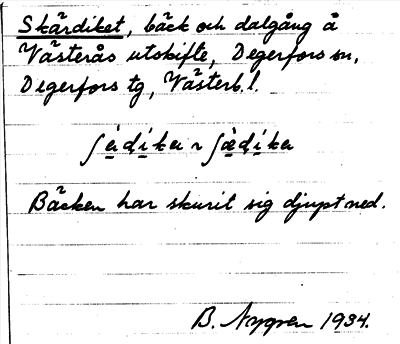 Skärdiket, bäck och dalgång å
Västerås utskifte, Degerfors sn,
Degerfors tg, Västerb. l.
Bäcken har skurit sig djupt ned.
B. Nygren 1934.